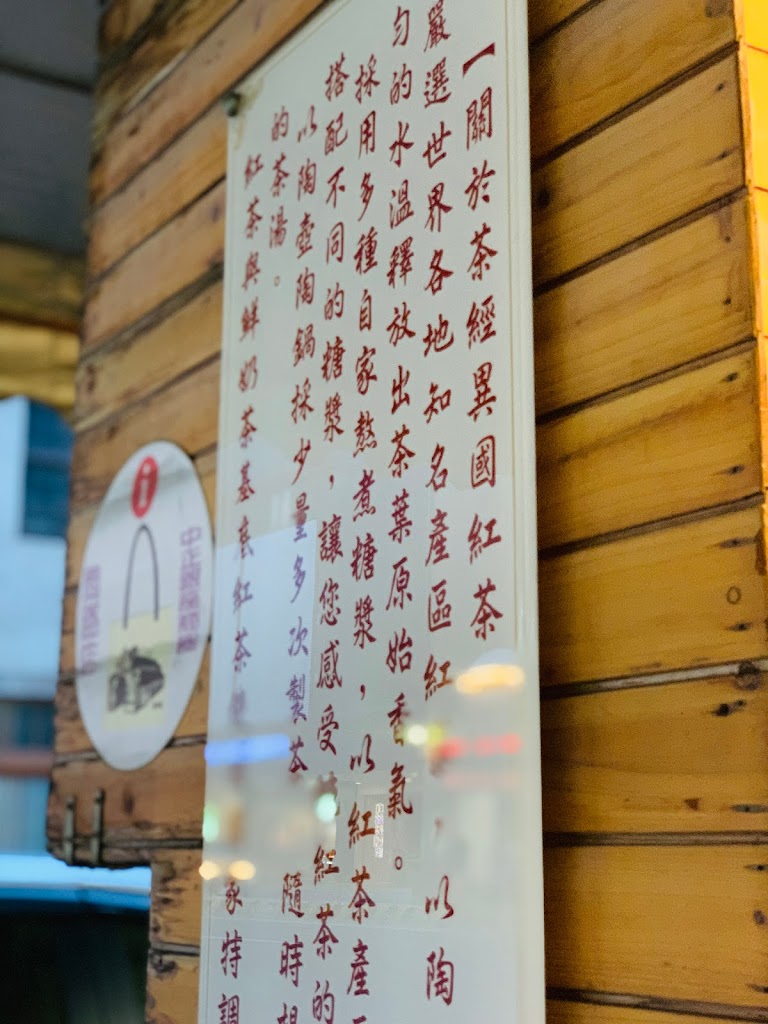 【關於茶經異國紅茶
嚴選世界各地知名產區紅 ，以陶
勻的水溫釋放出茶葉原始香氣。
採用多種自家熬煮糖漿，以紅茶產
搭配不同的糖漿，讓您感受 紅茶的
以陶壺陶鍋採少量多次製茶 隨時
的茶湯。
紅茶與鮮奶茶基底紅茶 家特調